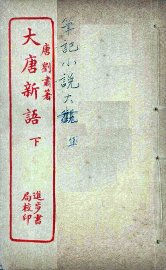 唐劉肅著
大唐新語 下
進步書
局校印
筆記小說大觀